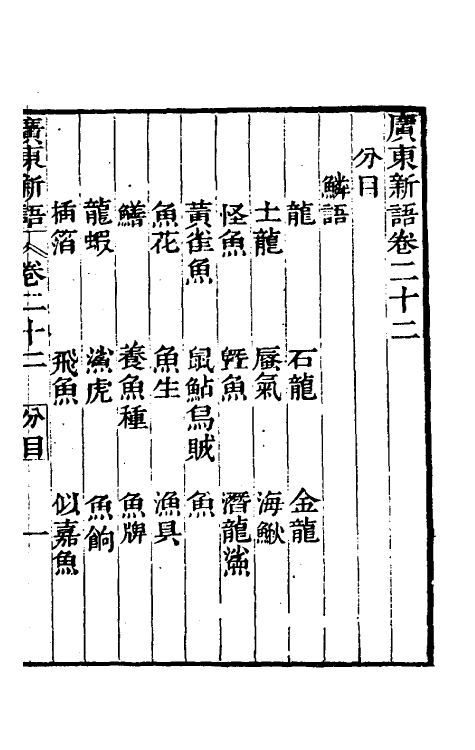 廣東新語卷二十二
分目
鱗語
龍 石龍 金龍
土龍 蜃氣 海鰍
怪魚 暨魚 潛龍鯊
黃雀魚 鼠鮎烏賊 魚
魚花 魚生 漁具
鱔 養魚種 魚牌
龍蝦 鯊虎 魚餉
插箔 飛魚 似嘉魚
廣東新語 卷二十二 分目 一